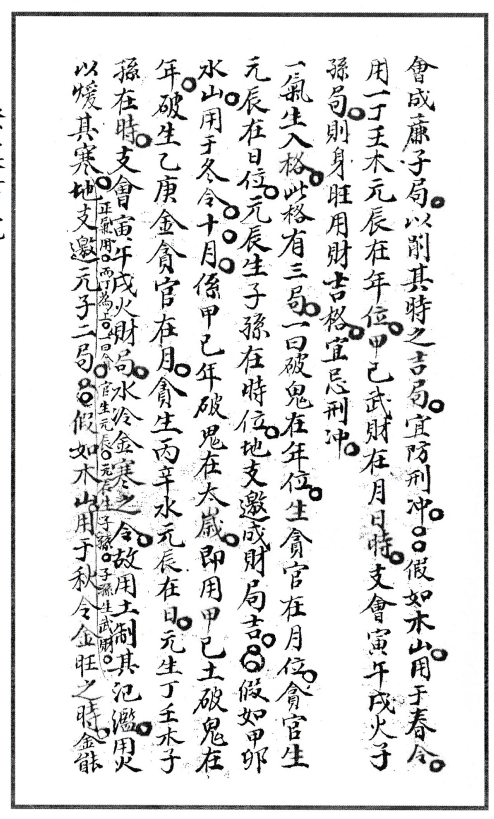 會成廉子局。以削其時之吉局。宜防刑冲。○○假如木山。用于春令。
用一丁壬木元辰在年位。甲己武財在月日時。支會寅午戌火子
孫局。則身旺用財吉格。宜忌刑冲。
一氣生入格。此格有三局。一曰破鬼在年位。生貪官在月位。貪官生
元辰在日位。元辰生子孫在時位。地支邀成財局吉。○○假如甲卯
水山。用于冬令。十月。係甲己年破鬼在太歲。即用甲己土破鬼在
年。破生乙庚金貪官在月。貪生丙辛水元辰在日。元生丁壬木子
孫在時。支會寅午戌火財局。水冷金寒之令。故用土制其氾濫。用火
以煖其寒。地支邀元子二局。○○假如木山。用于秋令金旺之時。金能
正氣用。丙丁為上。一曰
官生元辰。元辰生子孫。子孫生武財。